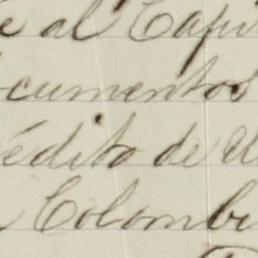 e al Capi
cumentos
édito de el
Colombi